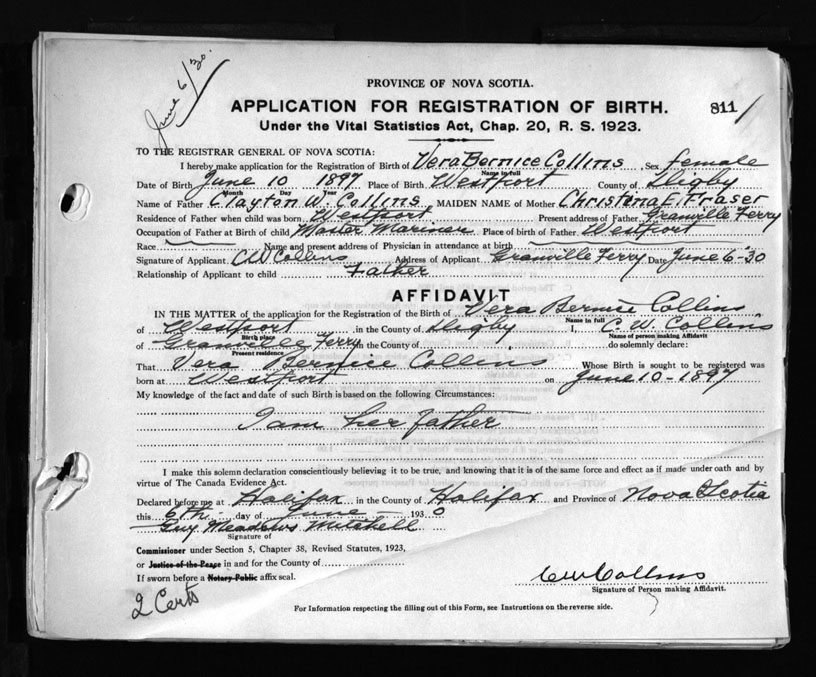 June 6/30
PROVINCE OF NOVA SCOTIA.
APPLICATION FOR REGISTRATION OF BIRTH. 811
Under the Vital Statistics Act, Chap. 20, R. S. 1923.
TO THE REGISTRAR GENERAL OF NOVA SCOTIA:
I hereby make application for the Registration of Birth of Vera Bernice Collins, Sex female
Name in full
Date of Birth June 10 1897 Place of Birth Westport County of Digby
Month Day Year
Name of Father Clayton W. Collins MAIDEN NAME of Mother Christina E. Fraser
Residence of Father when child was born Westport Present address of Father Granville Ferry
Occupation of Father at Birth of child Master Mariner Place of birth of Father Westport
Race Name and present address of Physician in attendance at birth
Signature of Applicant CW Collins Address of Applicant Granville Ferry Date June 6-30
Relationship of Applicant to child Father
AFFIDAVIT
IN THE MATTER of the application for the Registration of the Birth of Vera Bernice Collins
Name in full
of Westport in the County of Digby I C. W. Collins
Birth place Name of person making Affidavit
of Granville Ferry in the County of do solemnly declare:
Present residence
That Vera Bernice Collins Whose Birth is sought to be registered was
born at Westport on June 10-1897
My knowledge of the fact and date of such Birth is based on the following Circumstances:
I am her father
I make this solemn declaration conscientiously believing it to be true, and knowing that it is of the same force and effect as if made under oath and by
virtue of The Canada Evidence Act.
Declared before me at Halifax in the County of Halifax and Province of Nova Scotia
this 6th day of June 1930
Guy Meadows Mitchell
Signature of
Commissioner under Section 5, Chapter 38, Revised Statutes, 1923,
or Justice of the Peace in and for the County of
If sworn before a Notary Public affix seal.
CW Collins
Signature of Person making Affidavit.
2 Certs
For Information respecting the filling out of this Form, see Instructions on the reverse side.